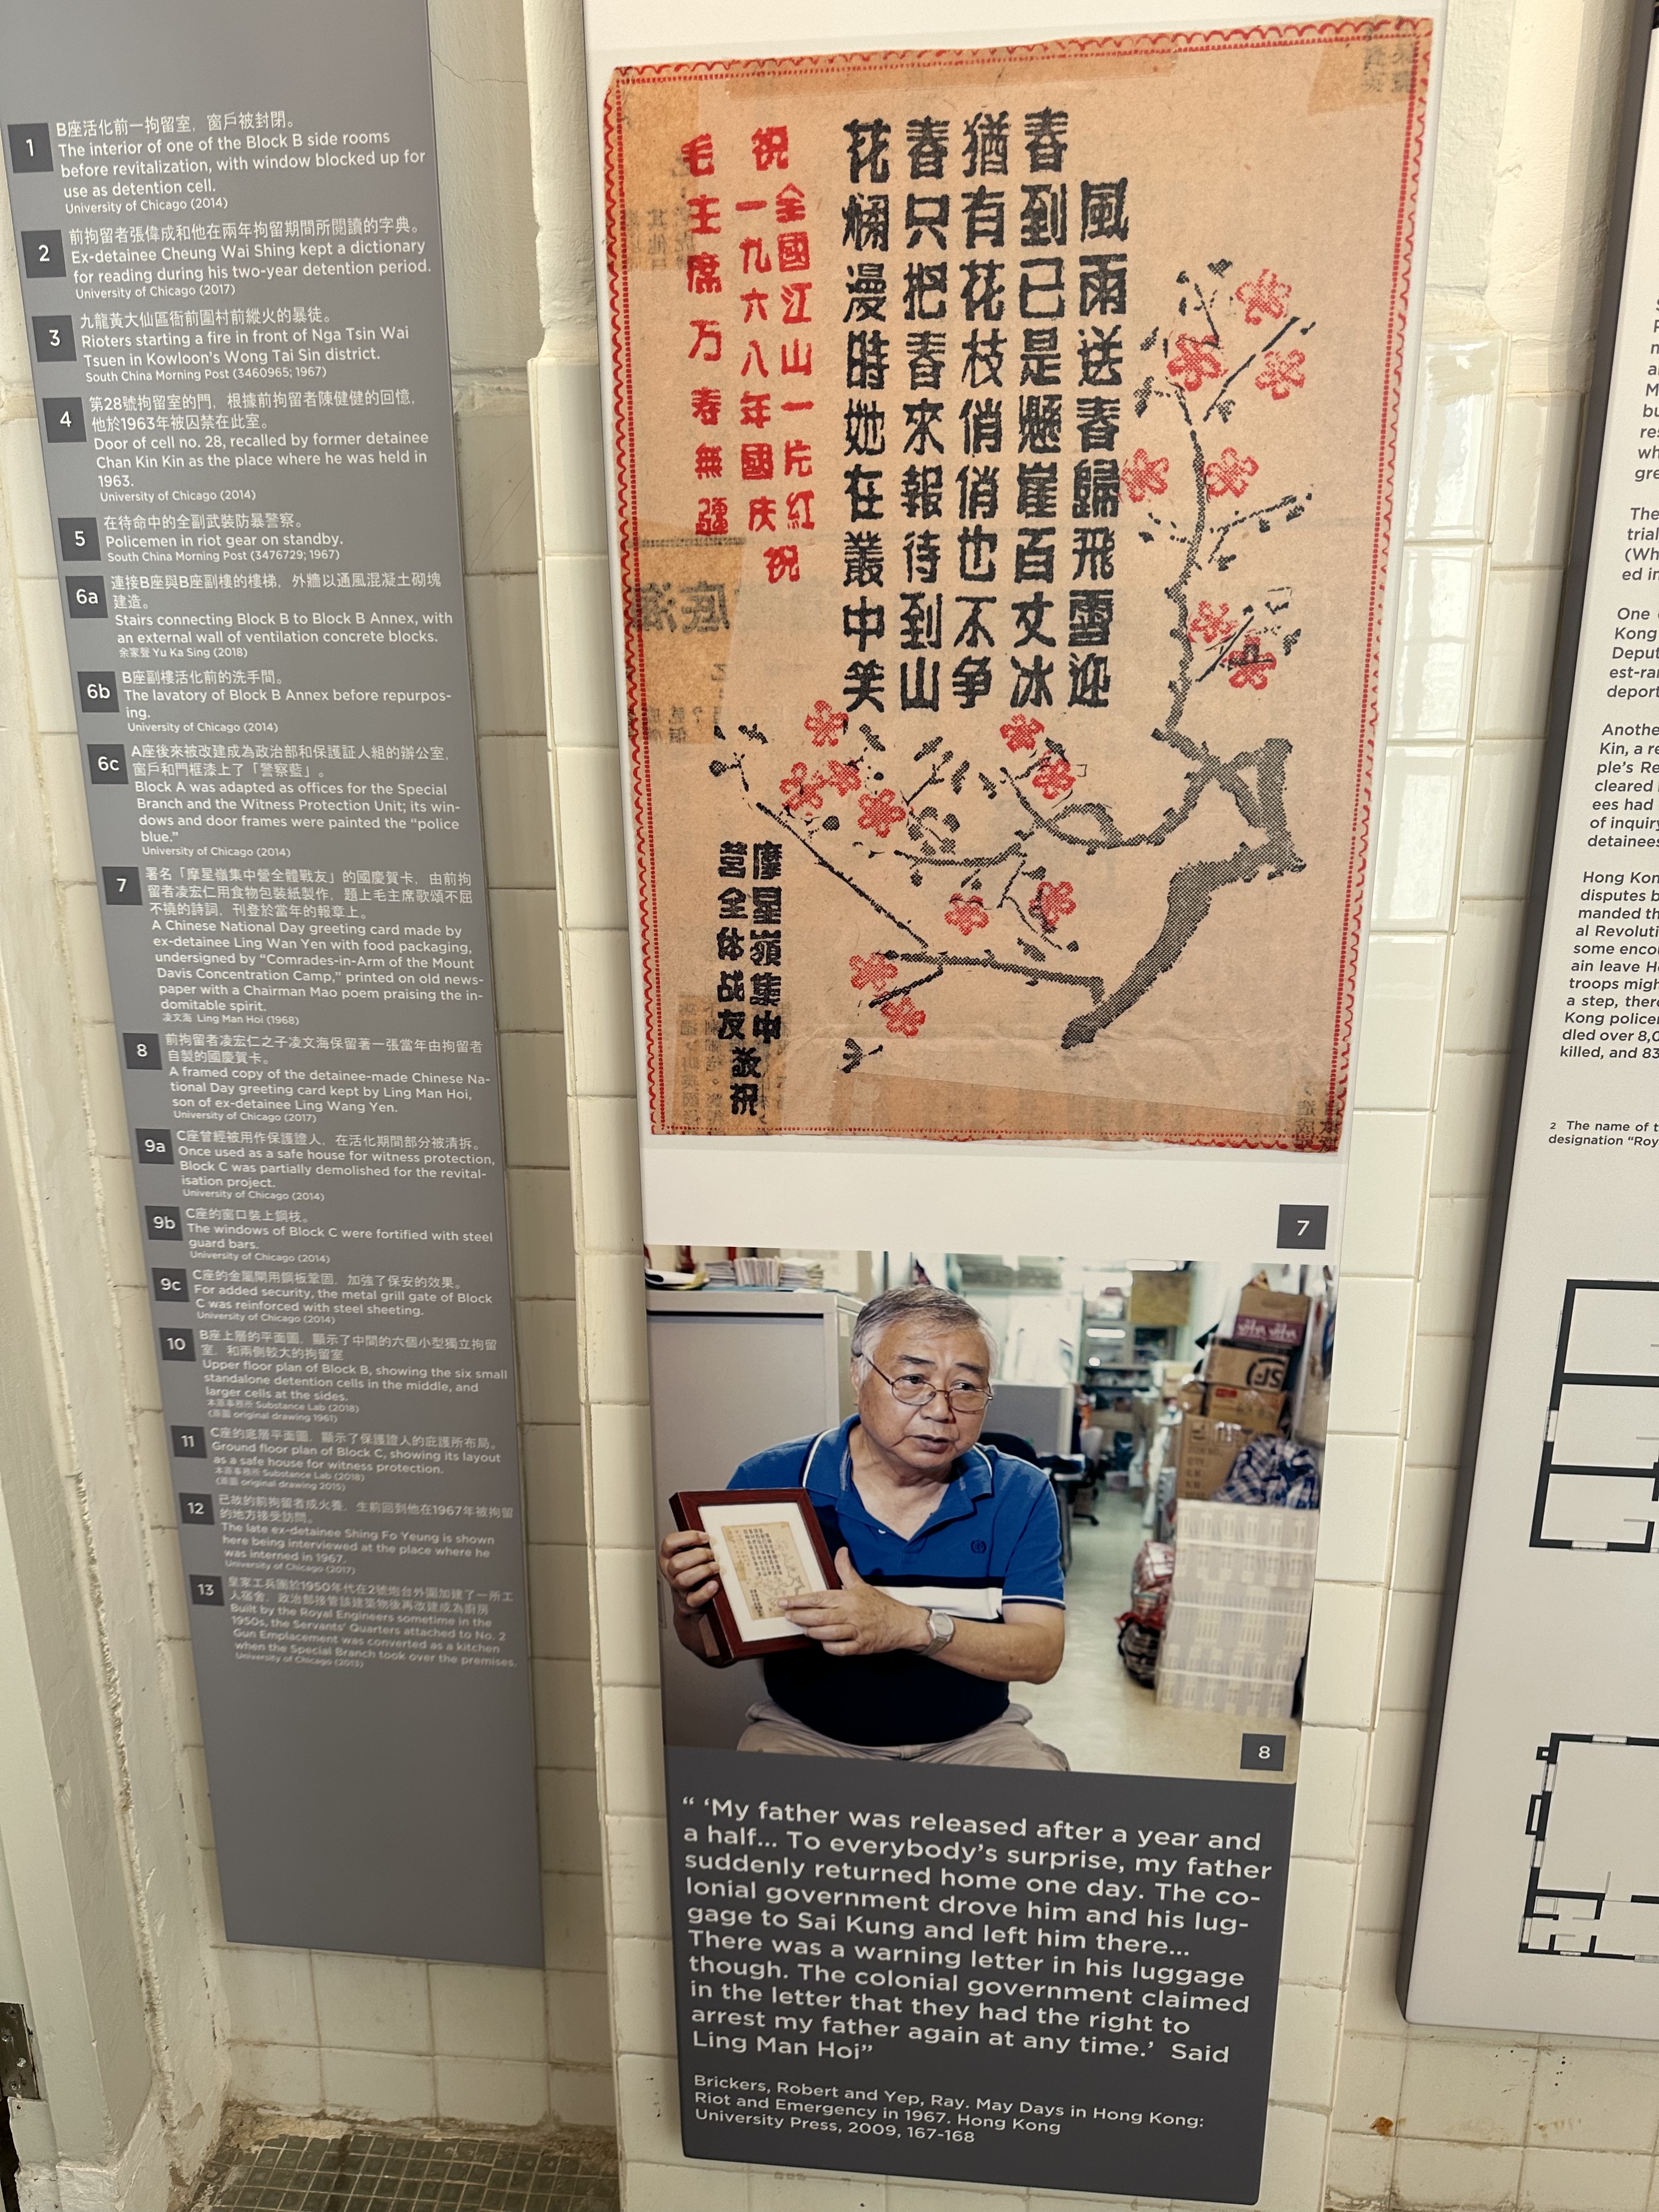 1
B座活化前一拘留室，窗戶被封閉。
The interior of one of the Block B side rooms
before revitalization, with window blocked up for
use as detention cell.
University of Chicago (2014)
2
前拘留者張偉成和他在兩年拘留期間所閱讀的字典。
Ex-detainee Cheung Wai Shing kept a dictionary
for reading during his two-year detention period.
University of Chicago (2017)
3
九龍黃大仙區衙前圍村前縱火的暴徒。
Rioters starting a fire in front of Nga Tsin Wai
Tsuen in Kowloon's Wong Tai Sin district.
South China Morning Post (3460965; 1967)
4
第28號拘留室的門，根據前拘留者陳健健的回憶，
他於1963年被囚禁在此室。
Door of cell no. 28, recalled by former detainee
Chan Kin Kin as the place where he was held in
1963.
University of Chicago (2014)
5
在待命中的全副武裝防暴警察。
Policemen in riot gear on standby.
South China Morning Post (3476729; 1967)
6a
連接B座與B座副樓的樓梯，外牆以通風混凝土砌塊
建造。
Stairs connecting Block B to Block B Annex, with
an external wall of ventilation concrete blocks.
余家聲 Yu Ka Sing (2018)
6b
B座副樓活化前的洗手間。
The lavatory of Block B Annex before repurpos-
ing.
University of Chicago (2014)
6c
A座後來被改建成為政治部和保護証人組的辦公室，
窗戶和門框漆上了「警察藍」。
Block A was adapted as offices for the Special
Branch and the Witness Protection Unit; its win-
dows and door frames were painted the "police
blue."
University of Chicago (2014)
7
署名「摩星嶺集中營全體戰友」的國慶賀卡，由前拘
留者凌宏仁用食物包裝紙製作，題上毛主席歌頌不屈
不撓的詩詞，刊登於當年的報章上。
A Chinese National Day greeting card made by
ex-detainee Ling Wan Yen with food packaging,
undersigned by "Comrades-in-Arm of the Mount
Davis Concentration Camp," printed on old news-
paper with a Chairman Mao poem praising the in-
domitable spirit.
凌文海 Ling Man Hoi (1968)
8
前拘留者凌宏仁之子凌文海保留著一張當年由拘留者
自製的國慶賀卡。
A framed copy of the detainee-made Chinese Na-
tional Day greeting card kept by Ling Man Hoi,
son of ex-detainee Ling Wang Yen.
University of Chicago (2017)
9a
C座曾經被用作保護證人，在活化期間部分被清拆。
Once used as a safe house for witness protection,
Block C was partially demolished for the revital-
isation project.
University of Chicago (2014)
9b
C座的窗口裝上鋼枝。
The windows of Block C were fortified with steel
guard bars.
University of Chicago (2014)
9c
C座的金屬閘用鋼板鞏固，加強了保安的效果。
For added security, the metal grill gate of Block
C was reinforced with steel sheeting.
University of Chicago (2014)
10
B座上層的平面圖，顯示了中間的六個小型獨立拘留
室，和兩側較大的拘留室
Upper floor plan of Block B, showing the six small
standalone detention cells in the middle, and
larger cells at the sides.
本原事務所 Substance Lab (2018)
(原圖 original drawing 1961)
11
C座的底層平面圖，顯示了保護證人的庇護所布局。
Ground floor plan of Block C, showing its layout
as a safe house for witness protection.
本原事務所 Substance Lab (2018)
(原圖 original drawing 2015)
12
已故的前拘留者成火養，生前回到他在1967年被拘留
的地方接受訪問。
The late ex-detainee Shing Fo Yeung is shown
here being interviewed at the place where he
was interned in 1967.
University of Chicago (2017)
13
皇家工兵團於1950年代在2號炮台外圍加建了一所工
人宿舍，政治部接管該建築物後再改建成為廚房
Built by the Royal Engineers sometime in the
1950s, the Servants' Quarters attached to No. 2
Gun Emplacement was converted as a kitchen
when the Special Branch took over the premises.
University of Chicago (2013)
風雨送春歸飛雪迎
春到已是懸崖百丈冰
猶有花枝俏俏也不争
春只把春來報待到山
花爛漫時她在叢中笑
祝
全國江山一片紅
一九六八年國庆
祝
毛主席万寿無疆
摩星嶺集中
营全体战友
敬祝
7
8
" 'My father was released after a year and
a half... To everybody's surprise, my father
suddenly returned home one day. The co-
lonial government drove him and his lug-
gage to Sai Kung and left him there...
There was a warning letter in his luggage
though. The colonial government claimed
in the letter that they had the right to
arrest my father again at any time.' Said
Ling Man Hoi"
Brickers, Robert and Yep, Ray. May Days in Hong Kong:
Riot and Emergency in 1967. Hong Kong
University Press, 2009, 167-168
The
trial
(Wh
ed in
One
Kong
Deput
est-ran
deport
Anothe
Kin, a re
ple's Re
cleared
ees had
of inquiry
detainees
Hong Kon
disputes b
manded th
al Revoluti
some encou
ain leave H
troops migh
a step, there
Kong policen
dled over 8,0
killed, and 83
2 The name of t
designation "Roy